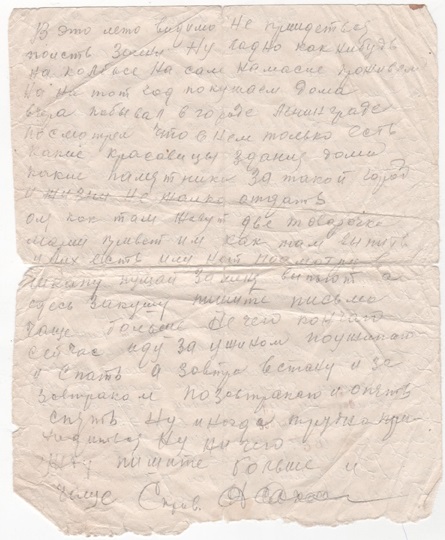 В это лето видимо не придеться
поисть Зелени Ну ладно как нибудь
на колбасе на сам на масле проживем
Но на тот год покушаем дома
вчера побывал в городе Ленинграде
посмотрел что в нем только есть
какие красавицы здания дома
какие памятники За такой город
и жизни не жалко отдать
ой как там живут две
привет им как там
у них есть или нет
пущай За меня выпьют а
здесь закушу пишите письма
чаще больше нечего
сейчас иду За ужином поужинаю
и спать а завтра встану и за
завтраком позавтракаю и опять
спать Ну иногда трудно при-
ходиться Ну ничего
Жду пишите больше и
чаще